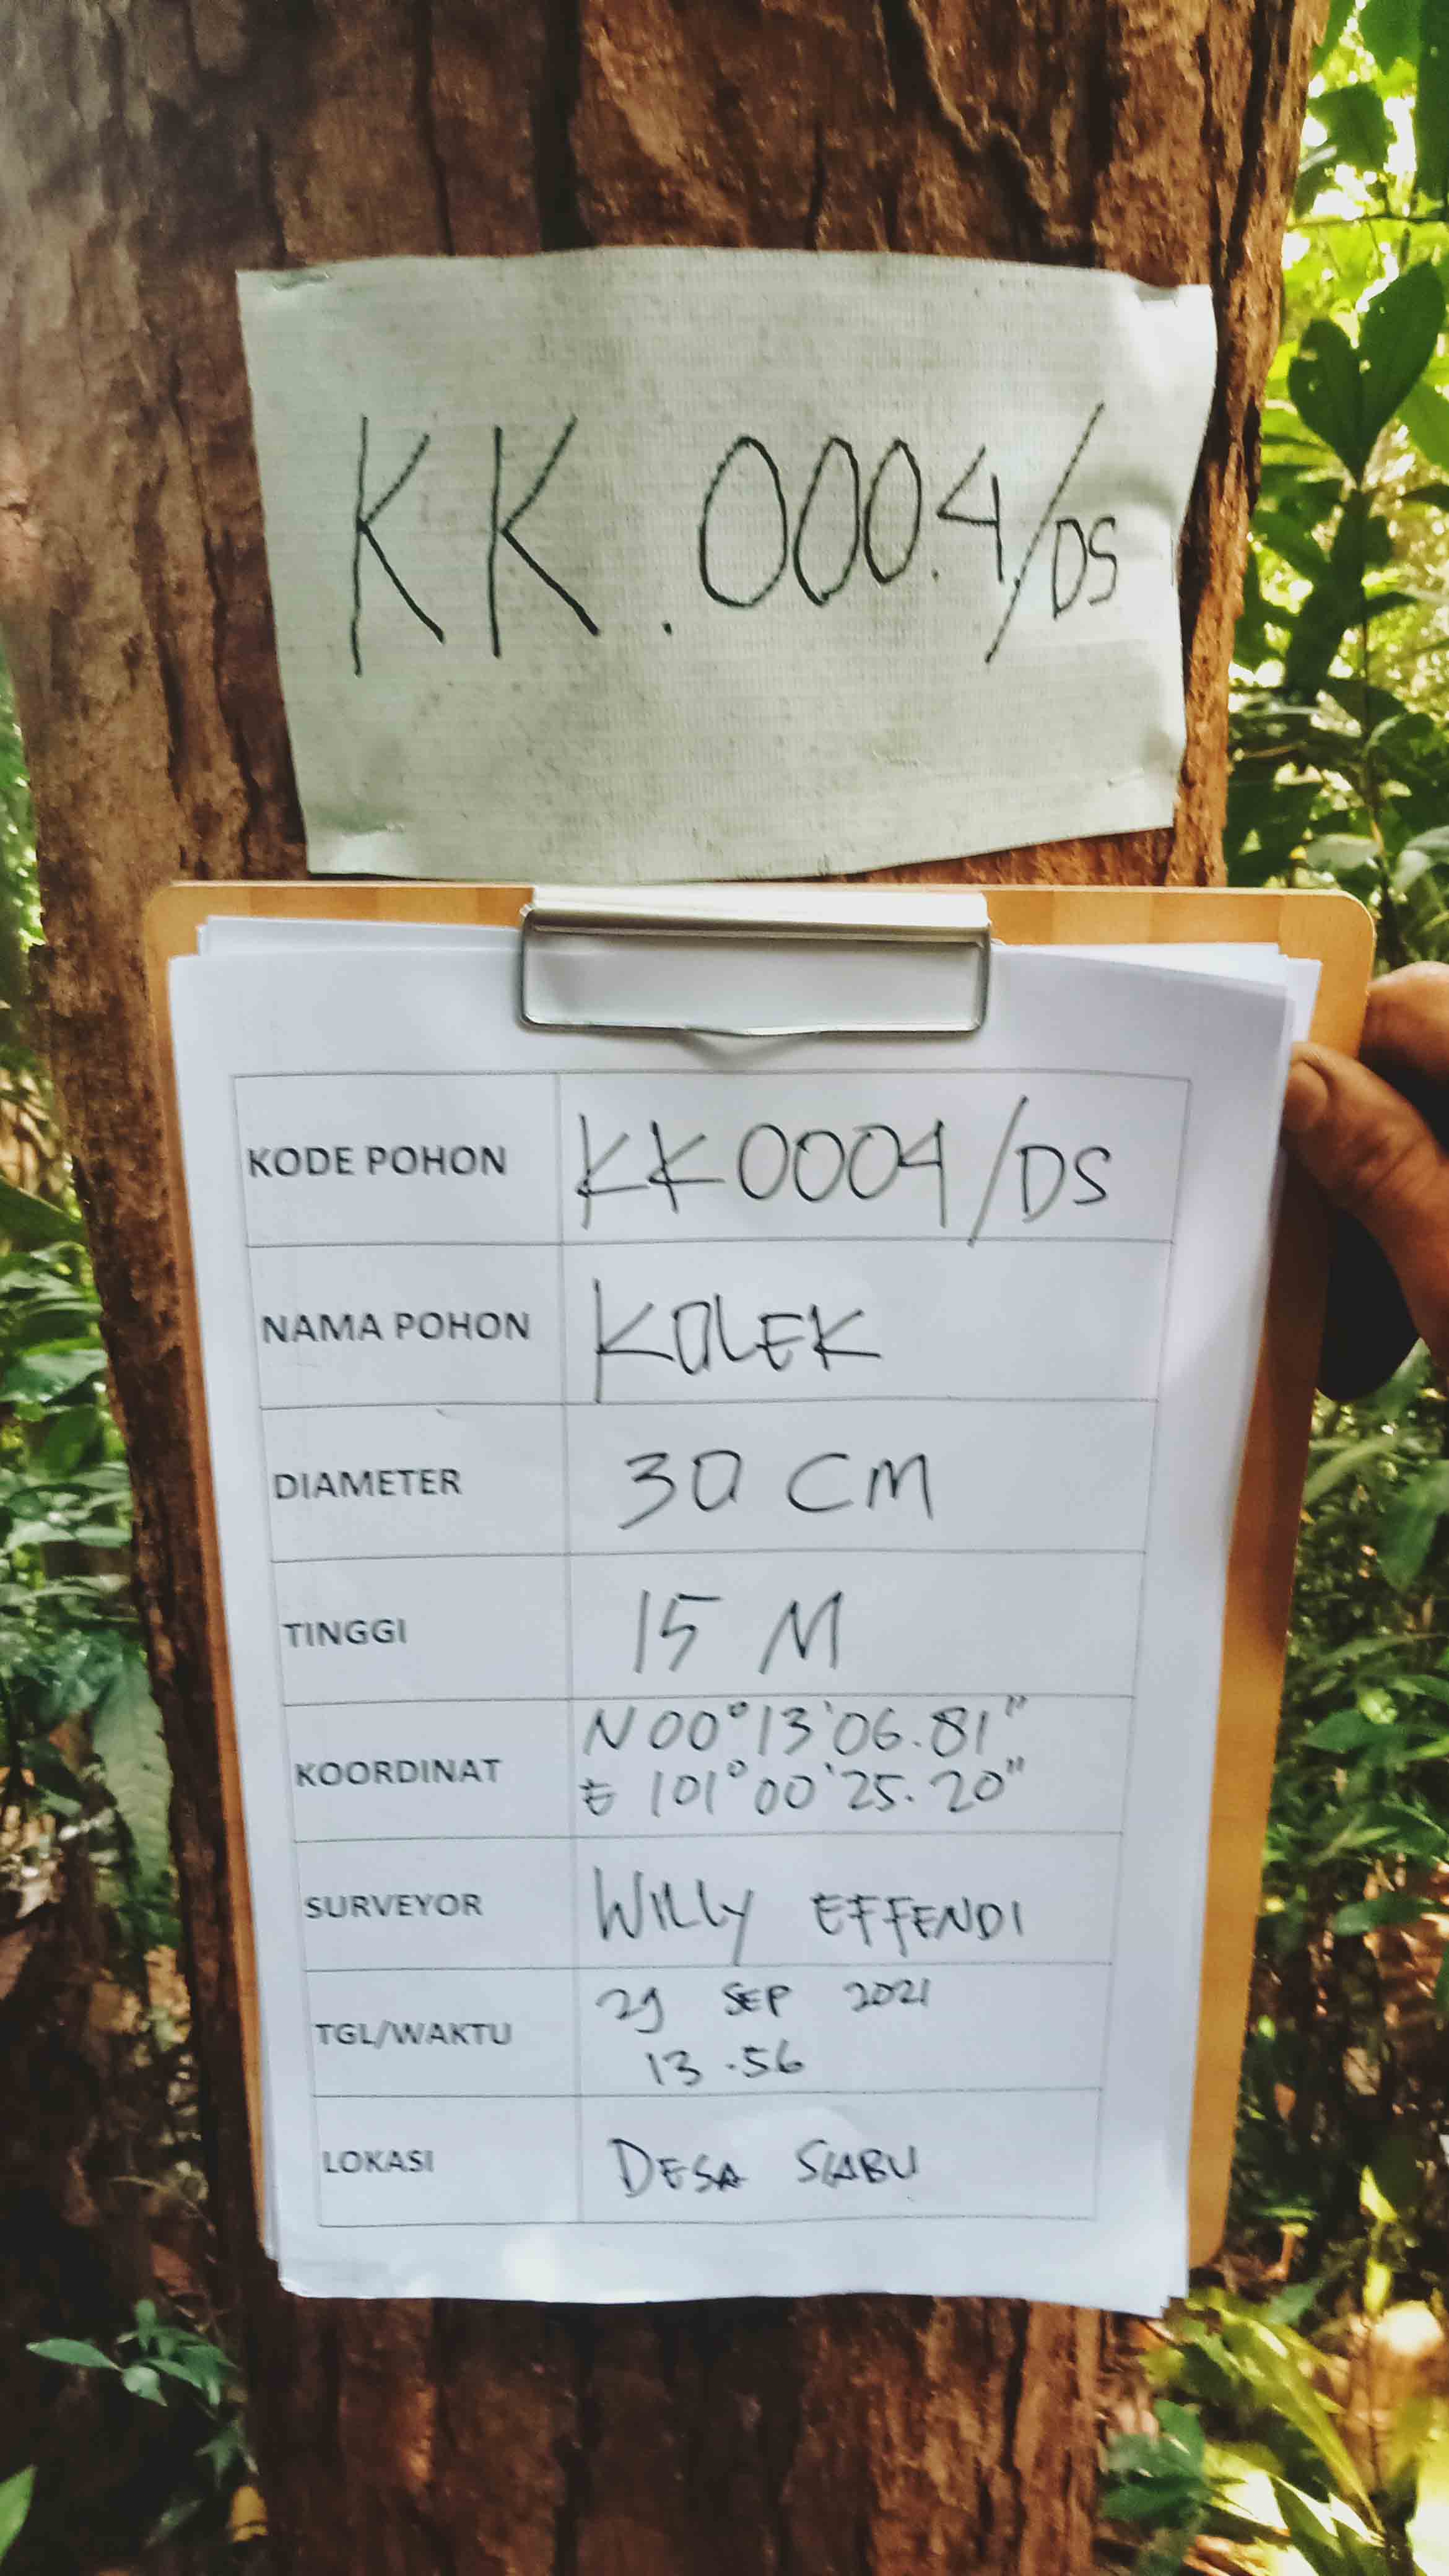 KK.0004/DS
KODE POHON KK0004/DS
NAMA POHON KOLEK
DIAMETER 30 CM
TINGGI 15 M
KOORDINAT N 00°13'06.81"
E 101°00'25.20"
SURVEYOR WILLY EFFENDI
TGL/WAKTU 29 SEP 2021
13.56
LOKASI DESA SIABU